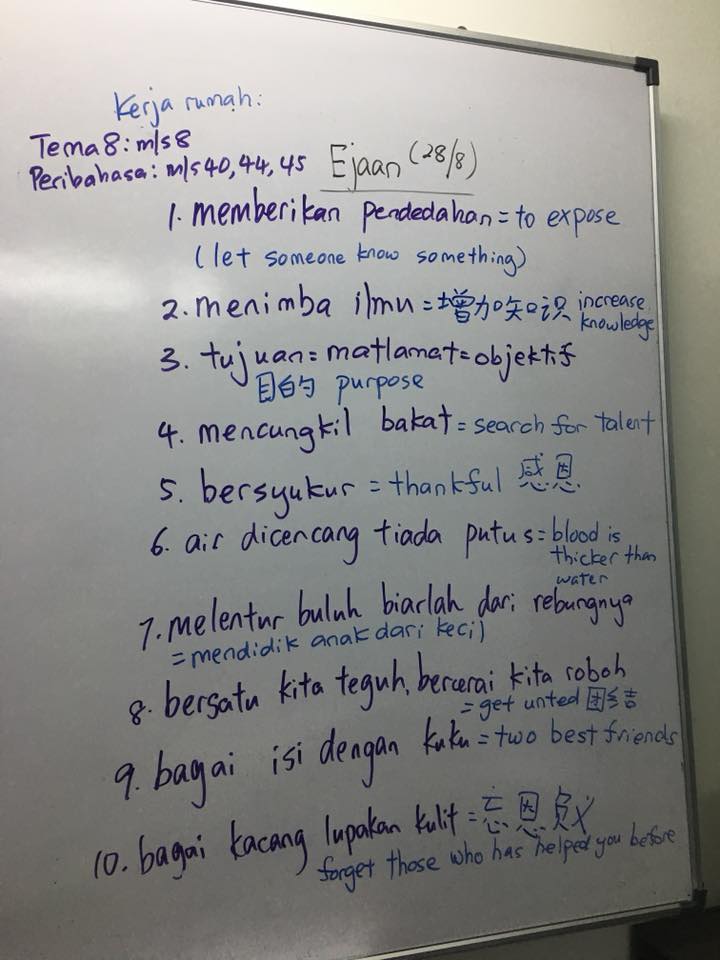 Kerja rumah:
Tema 8: m/s 8
Peribahasa: m/s 40, 44, 45
Ejaan (28/8)
1. memberikan pendedahan = to expose
(let someone know something)
2. menimba ilmu = 增加知识 increase
knowledge
3. tujuan = matlamat = objektif
目的 purpose
4. mencungkil bakat = search for talent
5. bersyukur = thankful 感恩
6. air dicencang tiada putus = blood is
thicker than
water
7. melentur buluh biarlah dari rebungnya
= mendidik anak dari kecil
8. bersatu kita teguh, bercerai kita roboh
= get unted 团结
9. bagai isi dengan kuku = two best friends
10. bagai kacang lupakan kulit = 忘恩负义
forget those who has helped you before